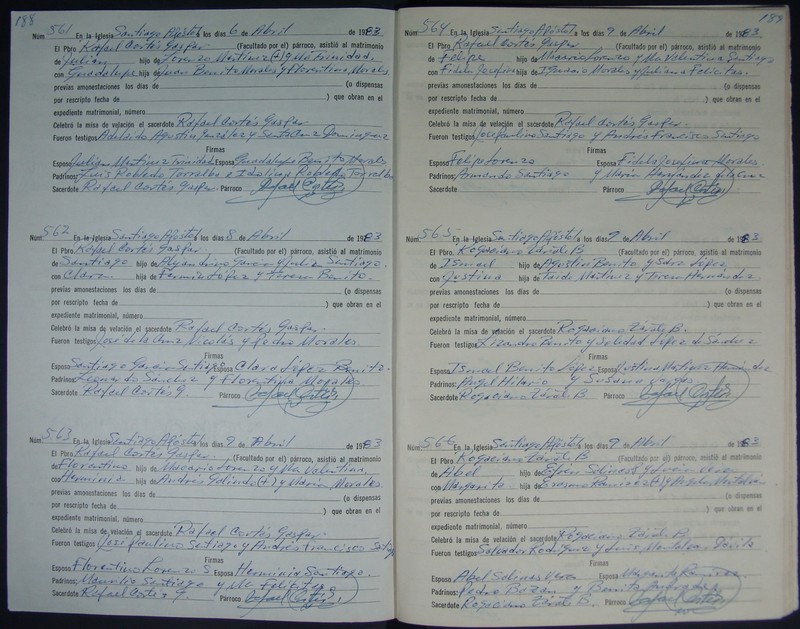 188
Núm. 561 En la Iglesia Santiago Apóstol a los días 6 de Abril de 1983
El Pbro. Rafael Cortés Gaspar (Facultado por el) párroco, asistió al matrimonio
de Julián hijo de Lorenzo Martínez (+) y Ma Trinidad
con Guadalupe hijo de Juan Benito Morales y Florentina Morales
previas amonestaciones los días de (o dispensas
por rescripto fecha de ) que obran en el
expediente matrimonial, número
Celebró la misa de velación el sacerdote Rafael Cortés Gaspar
Fueron testigos Adelaido Agustín González y Santa Cruz Domínguez
Firmas
Esposo Julián Martínez Trinidad Esposa Guadalupe Benito Morales
Padrinos: Luis Robledo Torralba e Idolina Robledo Torralba
Sacerdote Rafael Cortés Gaspar. Párroco Rafael Cortés
Núm. 562 En la Iglesia Santiago Apóstol a los días 8 de Abril de 1983
El Pbro. Rafael Cortés Gaspar (Facultado por el) párroco, asistió al matrimonio
de Santiago hijo de García y Julia Santiago
con Clara hijo de Fermín López y Benito
previas amonestaciones los días de (o dispensas
por rescripto fecha de ) que obran en el
expediente matrimonial, número
Celebró la misa de velación el sacerdote Rafael Cortés Gaspar
Fueron testigos José de la Cruz Nicolás y Pedro Morales
Firmas
Esposo Santiago García Santiago Esposa Clara López Benito
Padrinos: Leonardo Sánchez y Florentina Morales
Sacerdote Rafael Cortés G. Párroco Rafael Cortés
Núm. 563 En la Iglesia Santiago Apóstol a los días 9 de Abril de 1983
El Pbro. Rafael Cortés Gaspar (Facultado por el) párroco, asistió al matrimonio
de Florentino hijo de Macario Lorenzo y Ma Valentina
con Herminia hijo de Andrés Galindo (+) y María Morales
previas amonestaciones los días de (o dispensas
por rescripto fecha de ) que obran en el
expediente matrimonial, número
Celebró la misa de velación el sacerdote Rafael Cortés Gaspar
Fueron testigos José Paulino Santiago y Andrés Francisco
Firmas
Esposo Florentino Lorenzo S Esposa Herminia Santiago
Padrinos: Santiago y M. Felícitas
Sacerdote Rafael Cortés G. Párroco Rafael Cortés
189
Núm. 564 En la Iglesia Santiago Apóstol a los días 9 de Abril de 1983
El Pbro. Rafael Cortés Gaspar (Facultado por el) párroco, asistió al matrimonio
de Felipe hijo de Macario Lorenzo y Ma Valentina Santiago
con Fidela Josefina hijo de Morales y Juliana Felícitas
previas amonestaciones los días de (o dispensas
por rescripto fecha de ) que obran en el
expediente matrimonial, número
Celebró la misa de velación el sacerdote Rafael Cortés Gaspar
Fueron testigos José Paulino Santiago y Andrés Francisco Santiago
Firmas
Esposo Felipe Lorenzo Esposa Fidela Josefina Morales
Padrinos: Armando Santiago y María Hernández
Sacerdote Párroco Rafael Cortés
Núm. 565 En la Iglesia Santiago Apóstol a los días 9 de Abril de 1983
El Pbro. Rogaciano Zárate B (Facultado por el) párroco, asistió al matrimonio
de Ismael hijo de Agustín Benito y Sara López
con Justina hijo de Martínez y Hernández
previas amonestaciones los días de (o dispensas
por rescripto fecha de ) que obran en el
expediente matrimonial, número
Celebró la misa de velación el sacerdote Rogaciano Zárate B.
Fueron testigos Lizandro Benito y Soledad López de Sánchez
Firmas
Esposo Ismael Benito López Esposa Justina Martínez Hernández
Padrinos: Angel Hilario y Susana Vargas
Sacerdote Rogaciano Zárate B Párroco Rafael Cortés
Núm. 566 En la Iglesia Santiago Apóstol a los días 9 de Abril de 1983
El Pbro. Rogaciano Zárate B. (Facultado por el) párroco, asistió al matrimonio
de Abel hijo de Efrén Salinas y Vera
con Margarita hijo de Erasmo Ramírez (+) y Angela
previas amonestaciones los días de (o dispensas
por rescripto fecha de ) que obran en el
expediente matrimonial, número
Celebró la misa de velación el sacerdote Rogaciano Zárate B.
Fueron testigos Salvador Rodríguez y Luis Dávila
Firmas
Esposo Abel Salinas Vera Esposa Margarita Ramírez
Padrinos: Pedro Bazán y Benita
Sacerdote Rogaciano Zárate B. Párroco Rafael Cortés